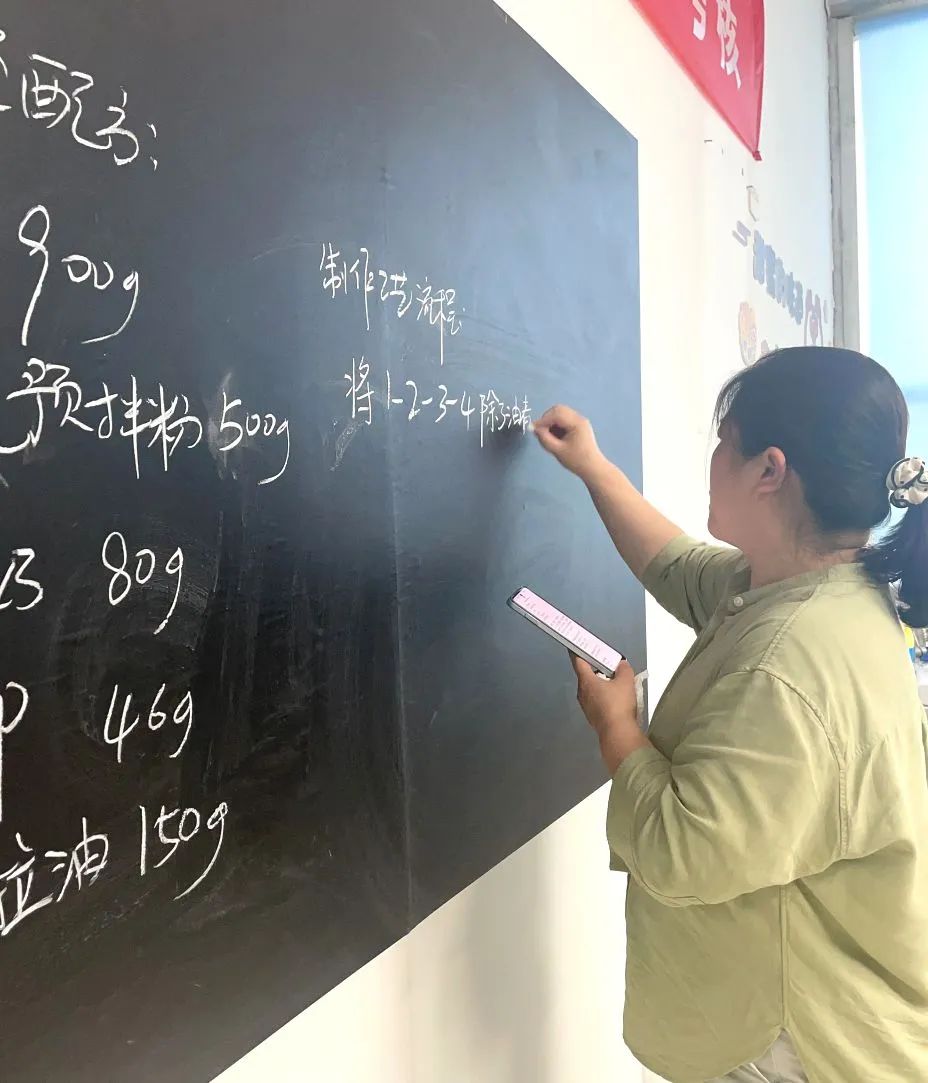 配方:
900g
预拌粉 500g
80g
46g
拉油 150g
制作工艺流程:
将1-2-3-4除了油